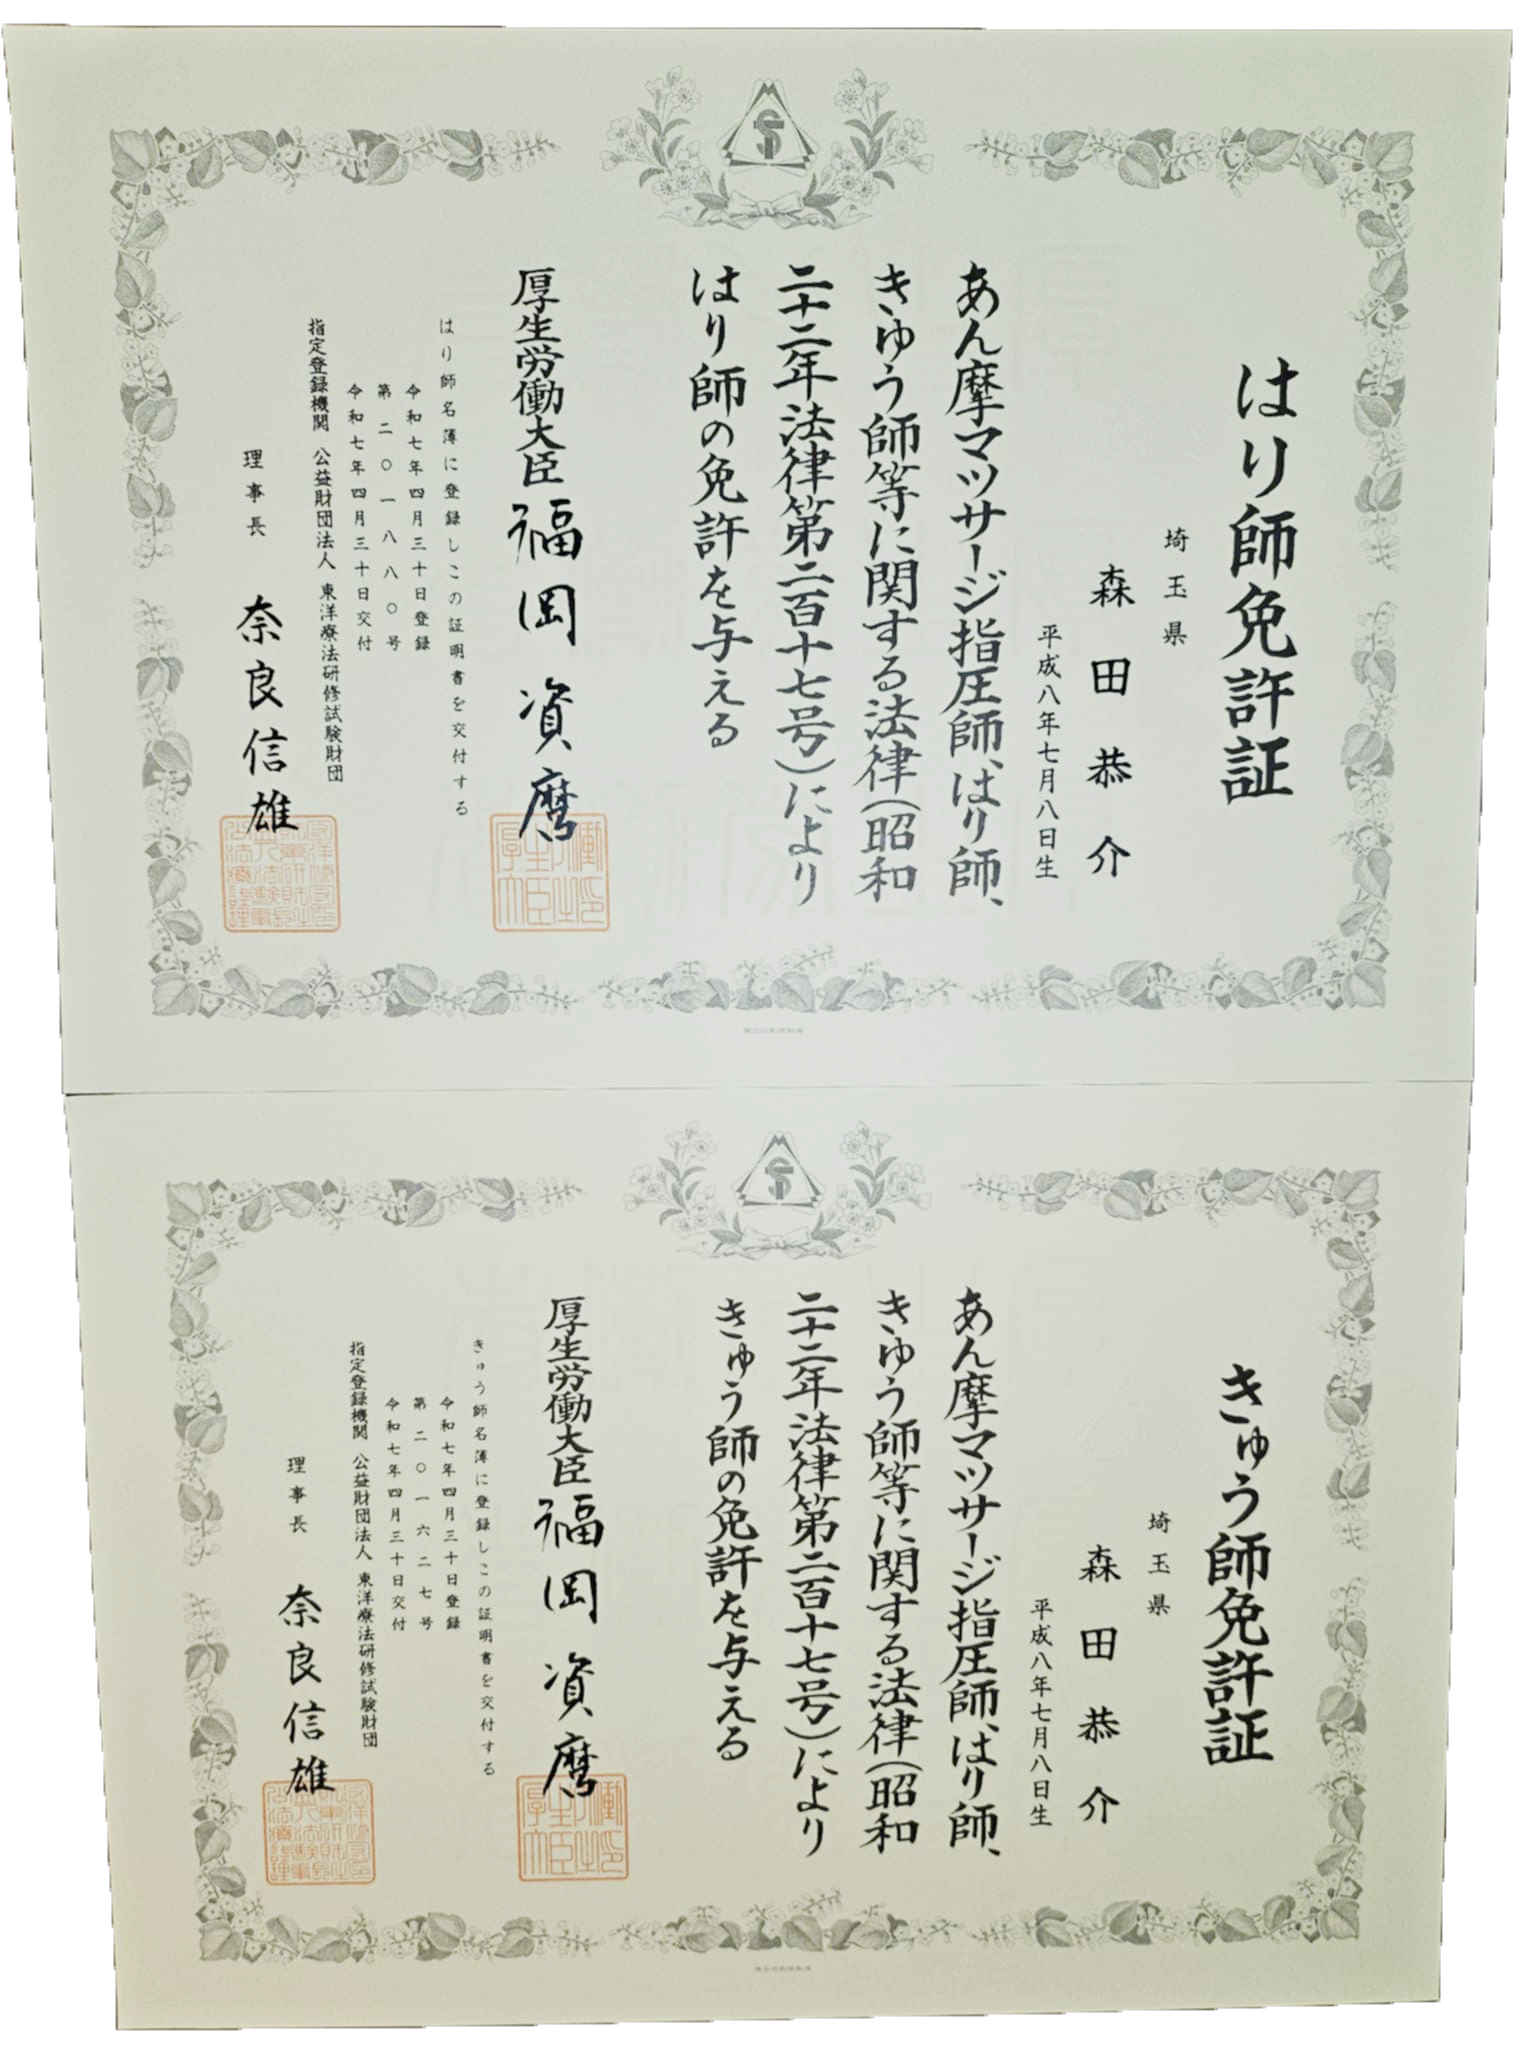 はり師免許証
埼玉県
森田恭介
平成八年七月八日生
あん摩マツサージ指圧師、はり師、
きゆう師等に関する法律(昭和
二十二年法律第二百十七号)により
はり師の免許を与える
厚生労働大臣 福岡資麿
はり師名簿に登録しこの証明書を交付する
令和七年四月三十日登録
第二〇一八八〇号
令和七年四月三十日交付
指定登録機関 公益財団法人 東洋療法研修試験財団
理事長 奈良信雄
きゅう師免許証
埼玉県
森田恭介
平成八年七月八日生
あん摩マツサージ指圧師、はり師、
きゆう師等に関する法律(昭和
二十二年法律第二百十七号)により
きゅう師の免許を与える
厚生労働大臣 福岡資麿
きゅう師名簿に登録しこの証明書を交付する
令和七年四月三十日登録
第二〇一六二七号
令和七年四月三十日交付
指定登録機関 公益財団法人 東洋療法研修試験財団
理事長 奈良信雄